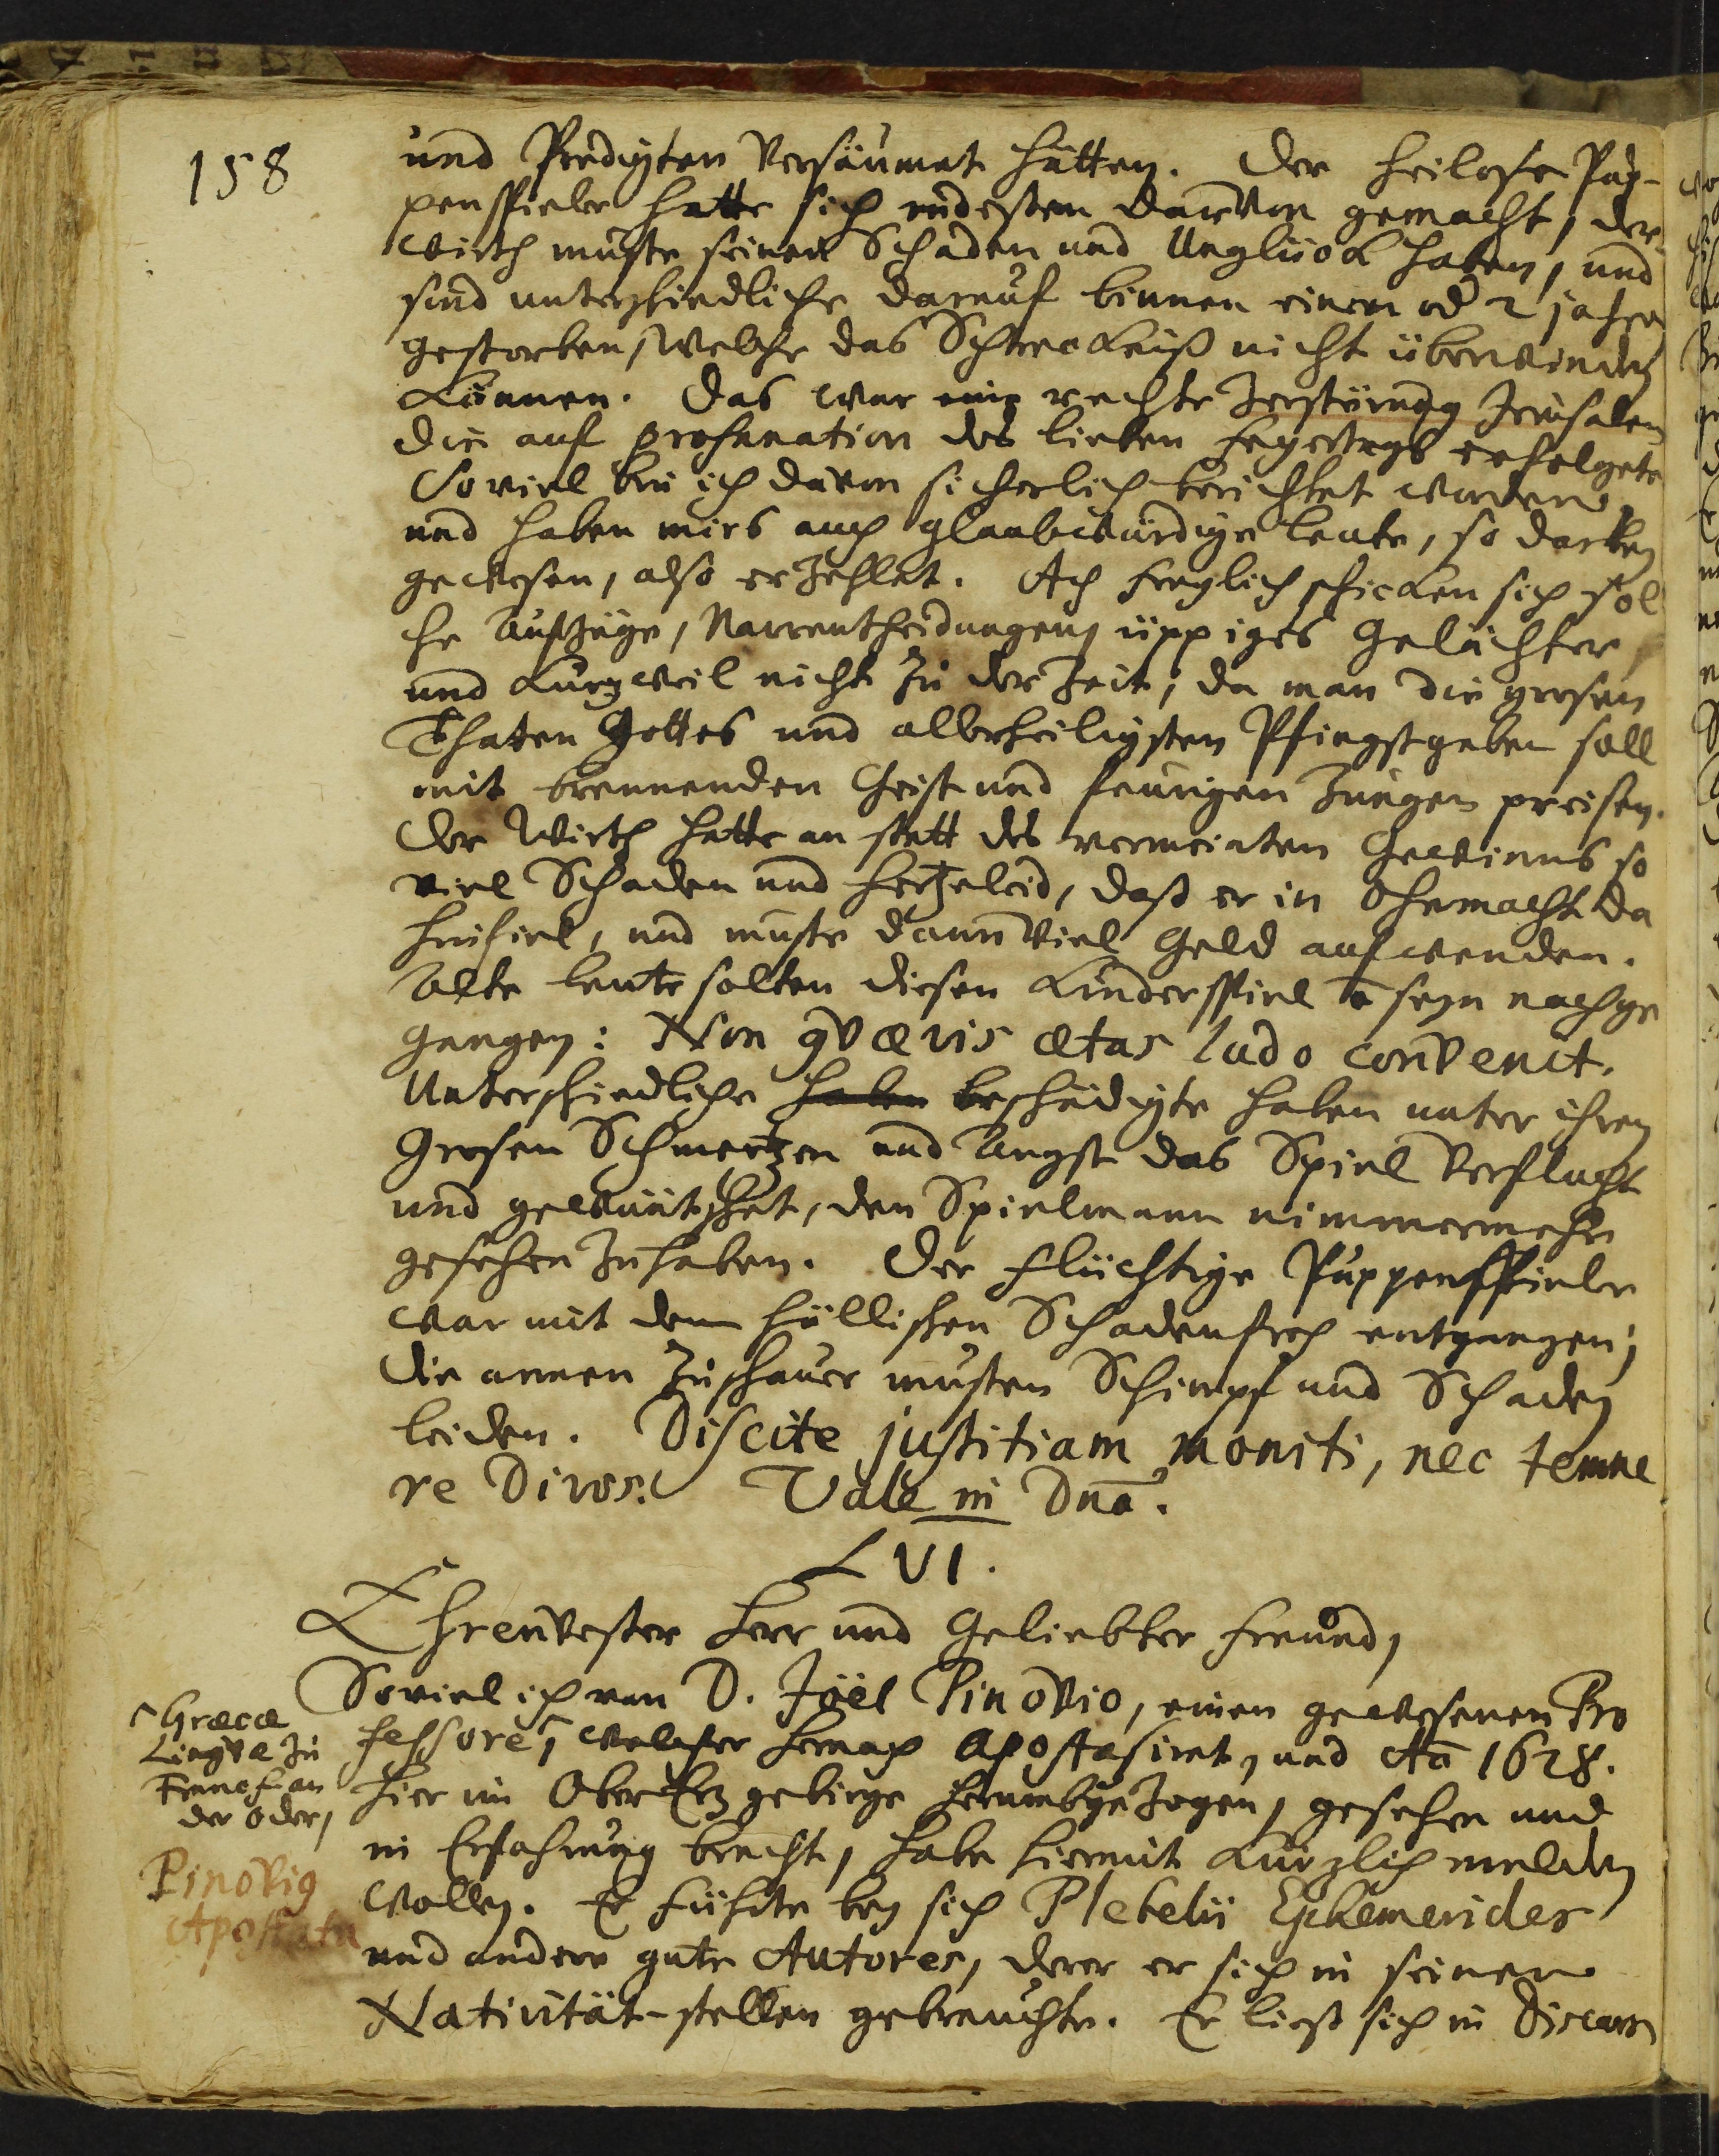 158
und Predigten Versäumet hätten. Der heilose Pup-
penspieler hatte sich indessen darvon gemacht, der
wirth muste seinen Schaden und Unglück haben, und
sind unterschiedliche darauf binnen einem od 2 jahren
gestorben, welche das Schreckniß nicht überwinden
können. Das war eine rechte Zerstörung Jerusalem
die auf profanation des lieben Feyertags erfolgete
So viel bin ich davon sicherlich berichtet worden,
und haben mirs auch glaubwürdige leute, so darbey
gewesen, also erzehlet. Ach freylich schicken sich sol
che Aufzüge, Narrentheidungen, üppiges Gelächter,
und Kurzweil nicht zu der Zeit, da man die grosen
Thaten Gottes und allerheiligsten Pfingstgaben soll
mit brennenden Geist und feurigen Zungen preisen.
Der Wirth hatte an statt des vermeinten Gewinns so
viel Schaden und hertzeleid, daß er in Ohnmacht da
hinfiel, und muste dann viel Geld aufwenden.
Alte leute solten diesen Kinderspiel ō seyn nachge
gangen: Non qvævis ætas ludo convenit.
Unterschiedliche haben beschädigte haben unter ihren
grosen Schmertzen und Angst das Spiel Verflucht
und gewünschet, den Spielmann nimmermehr
gesehen zu haben. Der flüchtige Puppenspieler
war mit dem höllischen Schadenfroh entgangen;
die armen Zuschauer musten Schimpf und Schaden
leiden. Discite justitiam moniti, nec temne
re Divos. Vale in Dno.
LVI.
Ehrenvester Herr und Geliebter freund,
Soviel ich von D. Joël Pinovio, einen gewesenen Pro
fessore, welcher hernach apostasiret, und Ao 1628.
hier im OberErtzgebirge herumbgezogen, gesehen und
in Erfahrung bracht, habe hiermit kürzlich melden
wollen. Er führte bey sich Plebelii Ephemerides
und andere gute Autores, derer er sich in seinen
Nativität-stellen gebrauchte. Er ließ sich in Discurs
Græcæ
Lingvæ zu
Francf an
der Oder,
Pinovig
Apostata